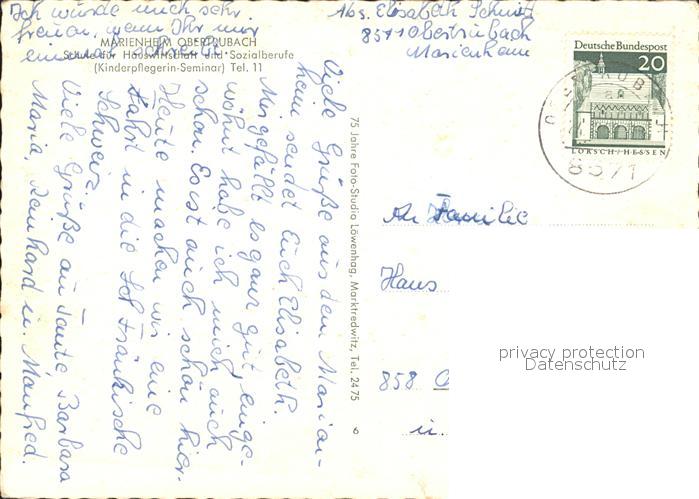 Ich würde mich sehr
freuen, wenn Ihr mir
einmal schreibt.
MARIENHEIM OBERTRUBACH
Schule für Hauswirtschaft und Sozialberufe
(Kinderpflegerin-Seminar) Tel. 11
Viele Grüße aus dem Marien-
heim sendet Euch Elisabeth.
Mir gefällt es ganz gut, einge-
wöhnt habe ich mich auch
schon. Es ist auch schön hier.
Heute machen wir eine
Fahrt in die Fränkische
Schweiz.
Viele Grüße an Tante Barbara
Maria, Reinhard u. Manfred.
75 Jahre Foto-Studio Löwenhag, Marktredwitz, Tel. 2475
6
Abs. Elisabeth Schmitz
8571 Obertrubach
Marienheim
Deutsche Bundespost
20
LORSCH/HESSEN
8571
An Familie
Hans
858
u.
privacy protection
Datenschutz